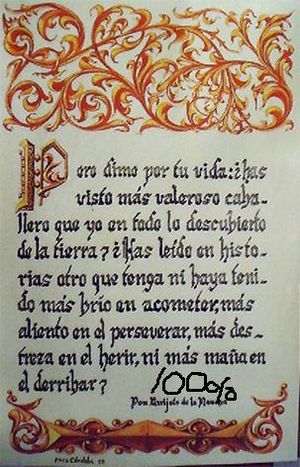 Pero dime por tu vida: ¿has
visto más valeroso caba-
llero que yo en todo lo descubierto
de la tierra? ¿Has leído en histo-
rias otro que tenga ni haya teni-
do más brío en acometer, más
aliento en el perseverar, más des-
treza en el herir, ni más maña en
el derribar?
100%
Don Quijote de la Mancha